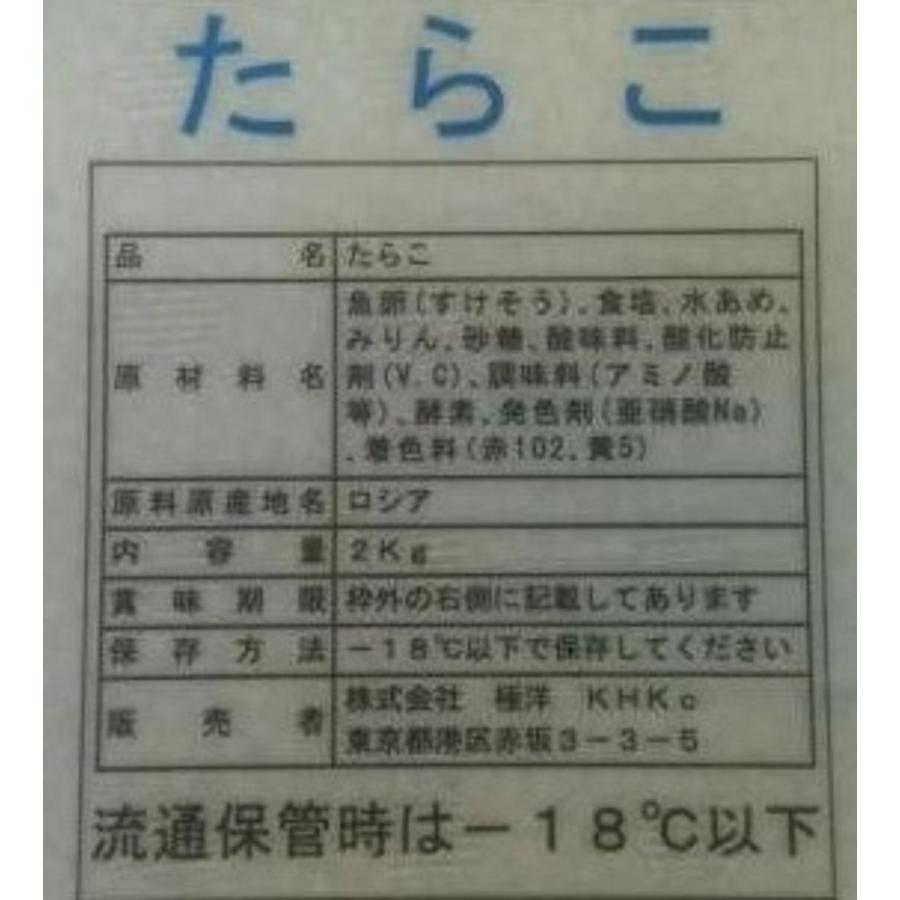 たらこ
品名 たらこ
原材料名 魚卵(すけそう)、食塩、水あめ、
みりん、砂糖、酸味料、酸化防止
剤(V.C)、調味料(アミノ酸
等)、酵素、発色剤(亜硝酸Na)
、着色料(赤102、黄5)
原料原産地名 ロシア
内容量 2Kg
賞味期限 枠外の右側に記載してあります
保存方法 -18℃以下で保存してください
販売者 株式会社 極洋 KHKo
東京都港区赤坂3-3-5
流通保管時は-18℃以下